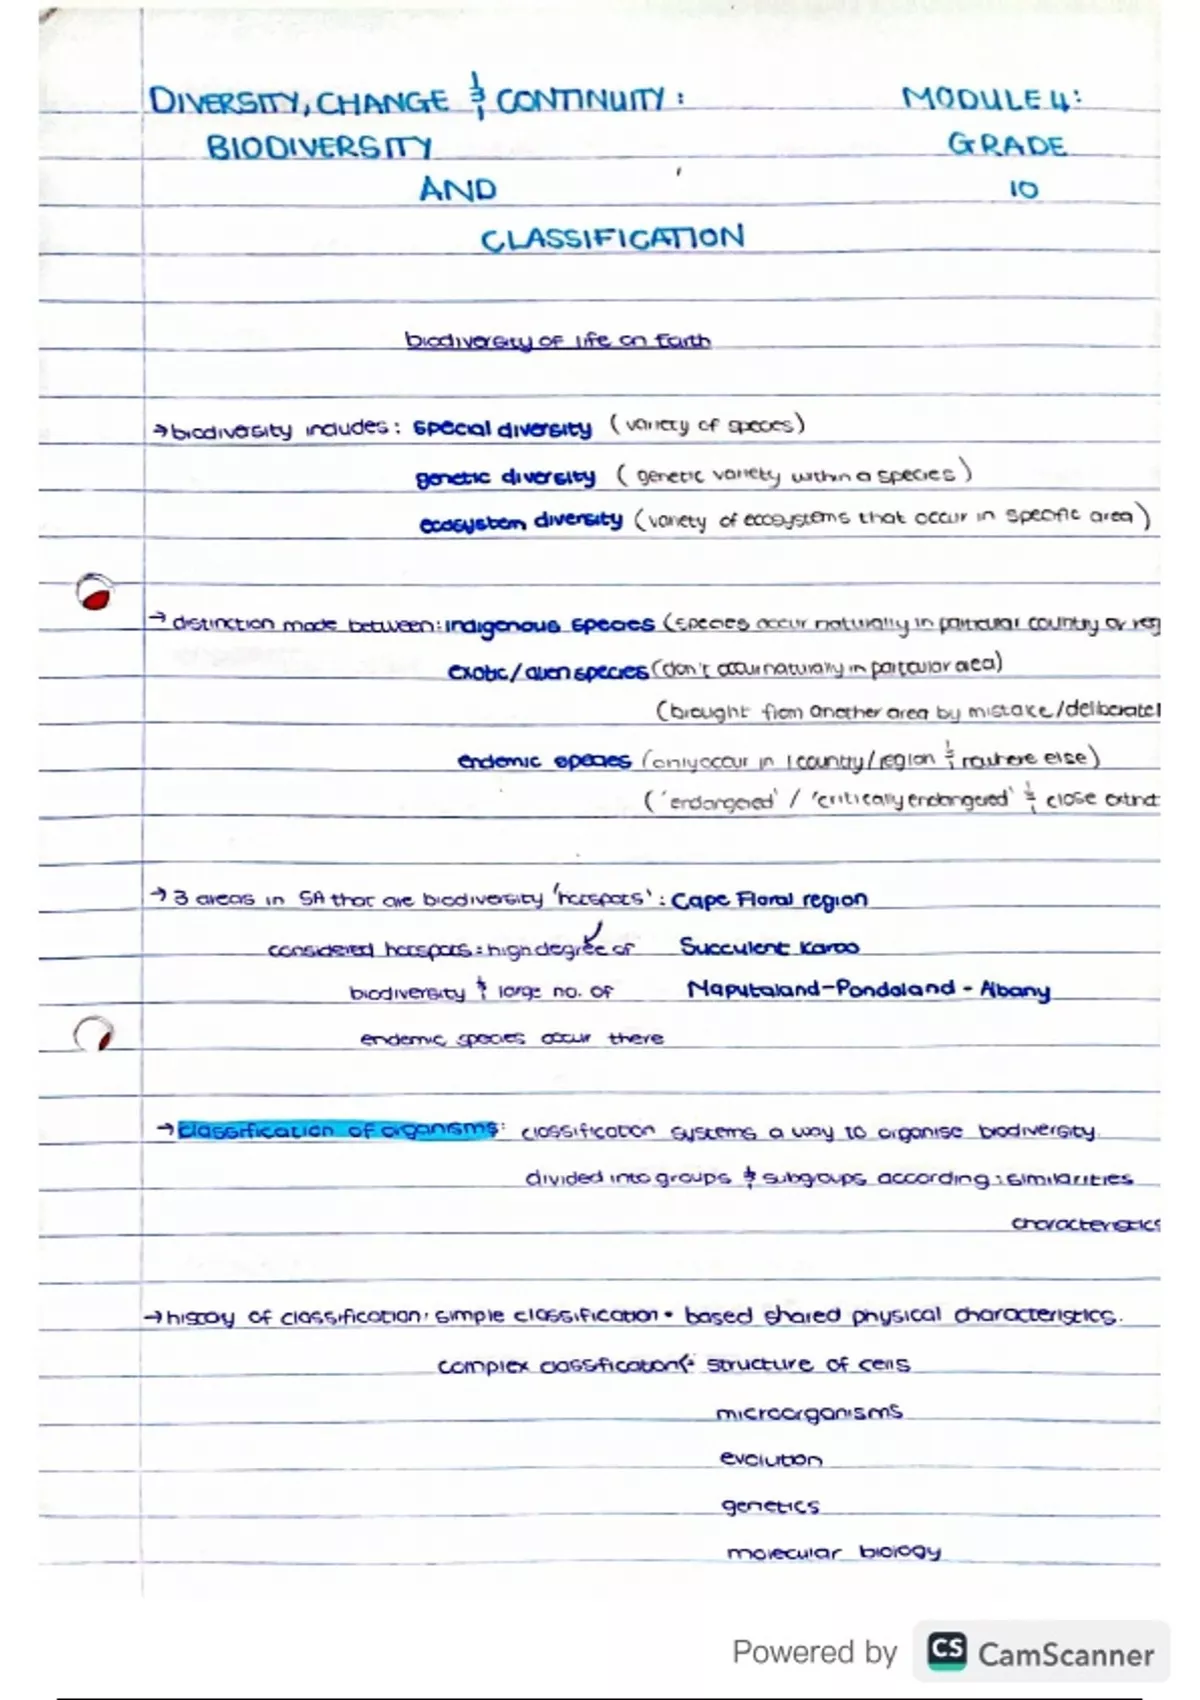 DIVERSITY, CHANGE & CONTINUITY : MODULE 4:
BIODIVERSITY GRADE
AND 10
CLASSIFICATION
biodiversity of life on Earth
→ biodiversity includes : special diversity (variety of species)
genetic diversity (genetic variety within a species)
ecosystem diversity (variety of ecosystems that occur in specific area)
→ distinction made between: indigenous species (species occur naturally in particular country or reg
exotic/alien species (don't occur naturally in particular area)
(brought from another area by mistake/deliberatel
endemic species (only occur in 1 country/region & nowhere else)
('endangered' / 'critically endangered' & close extinct
→ 3 areas in SA that are biodiversity 'hotspots' : Cape Floral region
considered hotspots : high degree of Succulent Karoo
biodiversity & large no. of Maputaland-Pondoland - Albany
endemic species occur there
→ classification of organisms: classification systems a way to organise biodiversity.
divided into groups & subgroups according : similarities
characteristics
→ history of classification: simple classification • based shared physical characteristics.
complex classification: structure of cells
microorganisms
evolution
genetics
molecular biology
Powered by CS CamScanner